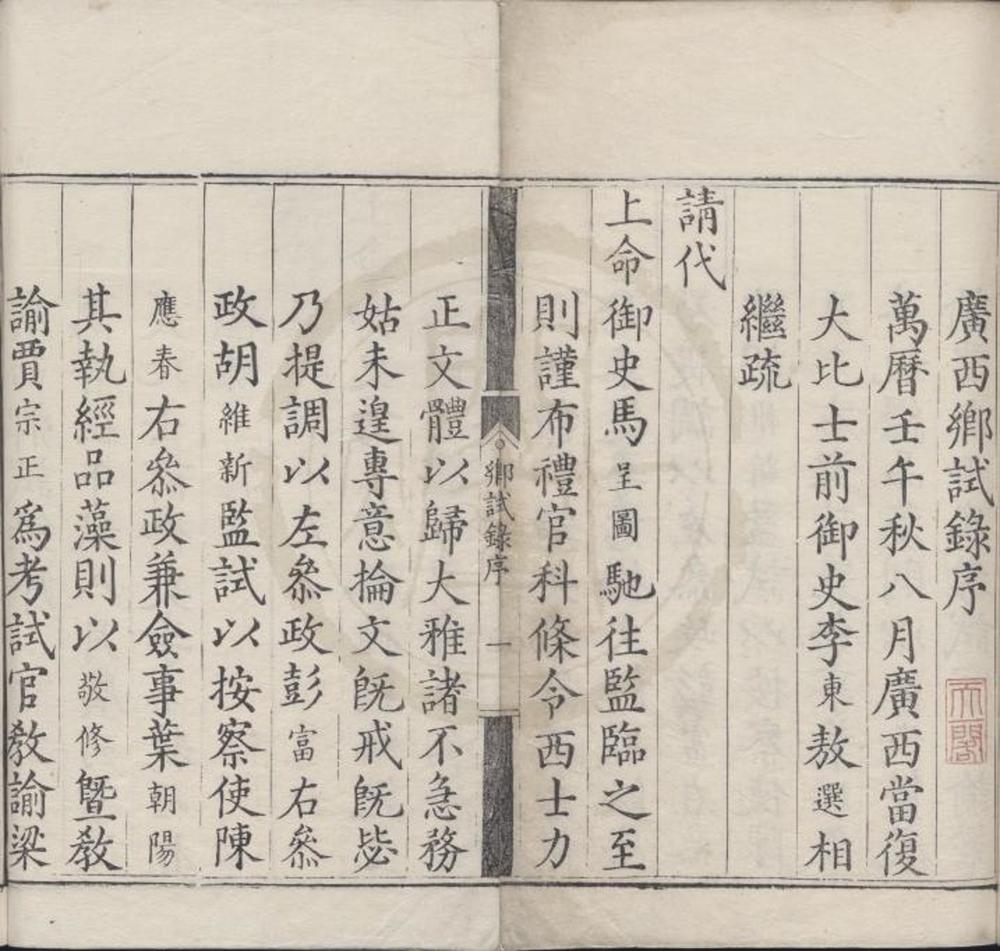 廣西鄉試錄序
萬曆壬午秋八月廣西當復
大比士前御史李東敖選相
繼疏
請代
上命御史馬呈圖馳往監臨之至
則謹布禮官科條令西士力
鄉試錄序 一
正文體以歸大雅諸不急務
姑未遑專意掄文旣戒旣毖
乃提調以左叅政彭富右叅
政胡維新監試以按察使陳
應春右叅政兼僉事葉朝陽
其執經品藻則以敬修暨敎
諭賈宗正爲考試官敎諭梁